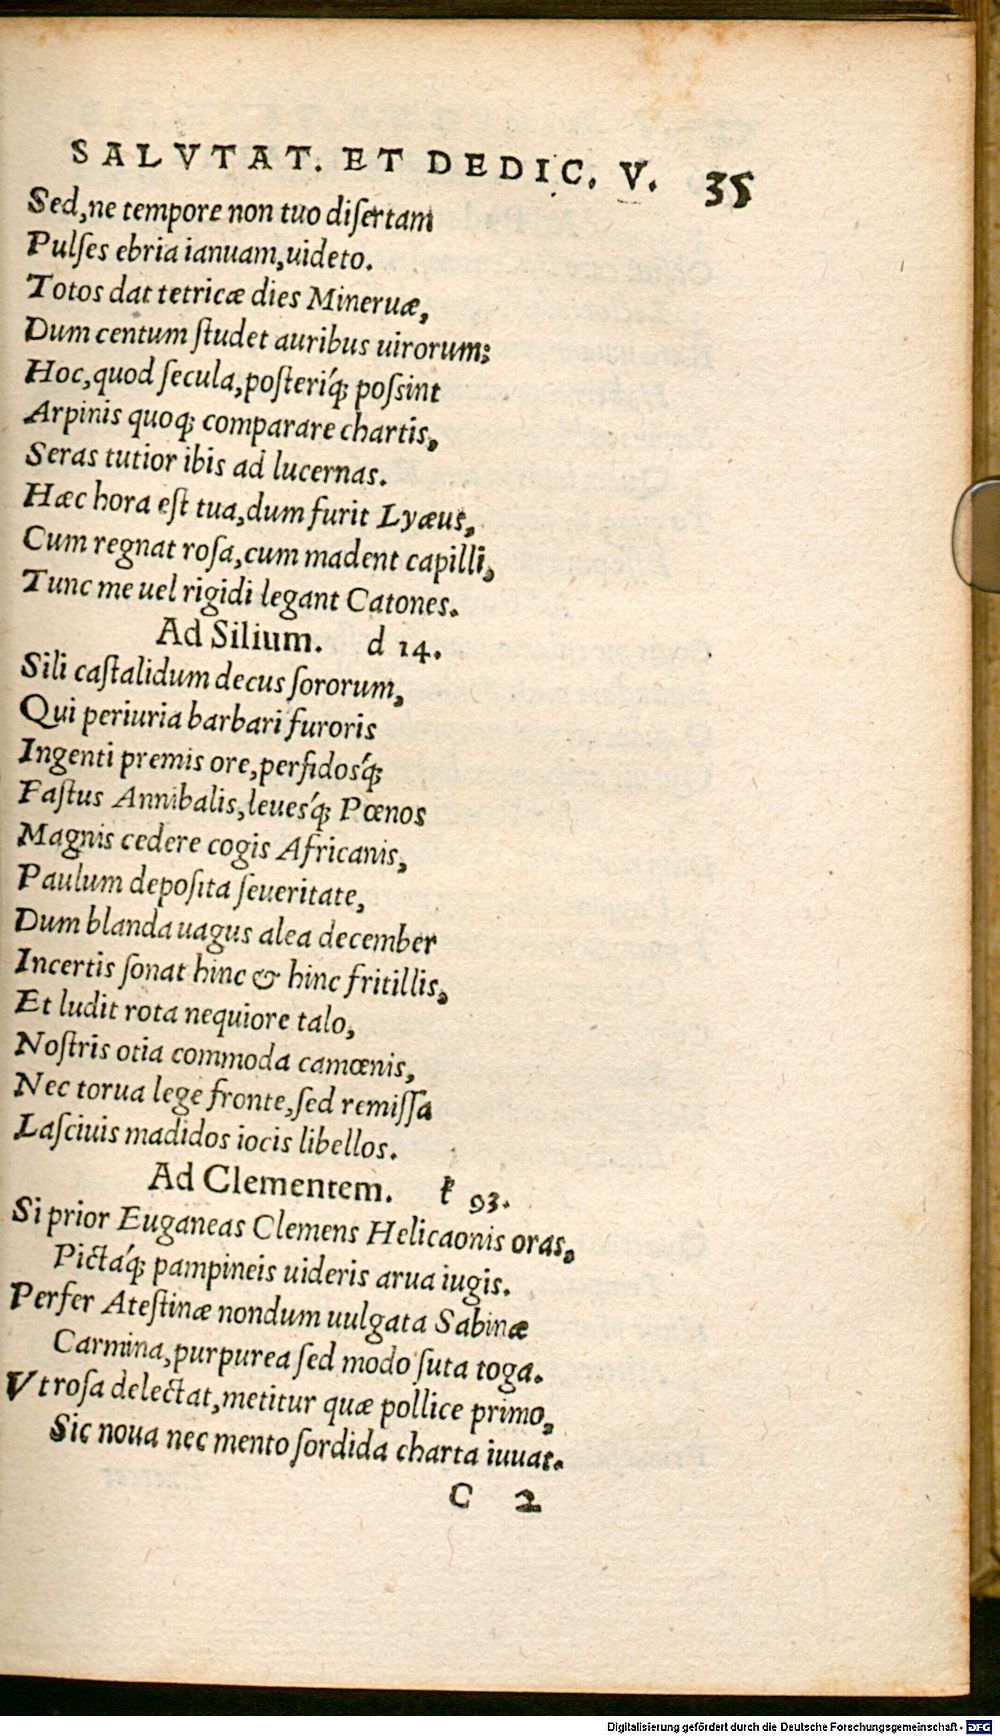 SALVTAT. ET DEDIC. V. 35
Sed,ne tempore non tuo disertam
Pulſes ebria ianuam,uideto.
Totos dat tetricæ dies Mineruæ,
Dum centum ſtudet auribus uirorum:
Hoc,quod ſecula,poſteriq́; poſsint
Arpinis quoq; comparare chartis,
Seras tutior ibis ad lucernas.
Hæc hora eſt tua,dum furit Lyæus,
Cum regnat roſa,cum madent capilli,
Tunc me uel rigidi legant Catones.
Ad Silium. d 14.
Sili caſtalidum decus ſororum,
Qui periuria barbari furoris
Ingenti premis ore,perfidosq́;
Faſtus Annibalis,leuesq́; Pœnos
Magnis cedere cogis Africanis,
Paulum depoſita ſeueritate,
Dum blanda uagus alea december
Incertis ſonat hinc & hinc fritillis,
Et ludit rota nequiore talo,
Noſtris otia commoda camœnis,
Nec torua lege fronte,ſed remiſſa
Laſciuis madidos iocis libellos.
Ad Clementem. k 93.
Si prior Euganeas Clemens Helicaonis oras,
Pictaq́; pampineis uideris arua iugis.
Perfer Ateſtinæ nondum uulgata Sabinæ
Carmina,purpurea ſed modo ſuta toga.
Vt roſa delectat,metitur quæ pollice primo,
Sic noua nec mento ſordida charta iuuat.
C 2
Digitalisierung gefördert durch die Deutsche Forschungsgemeinschaft - DFG